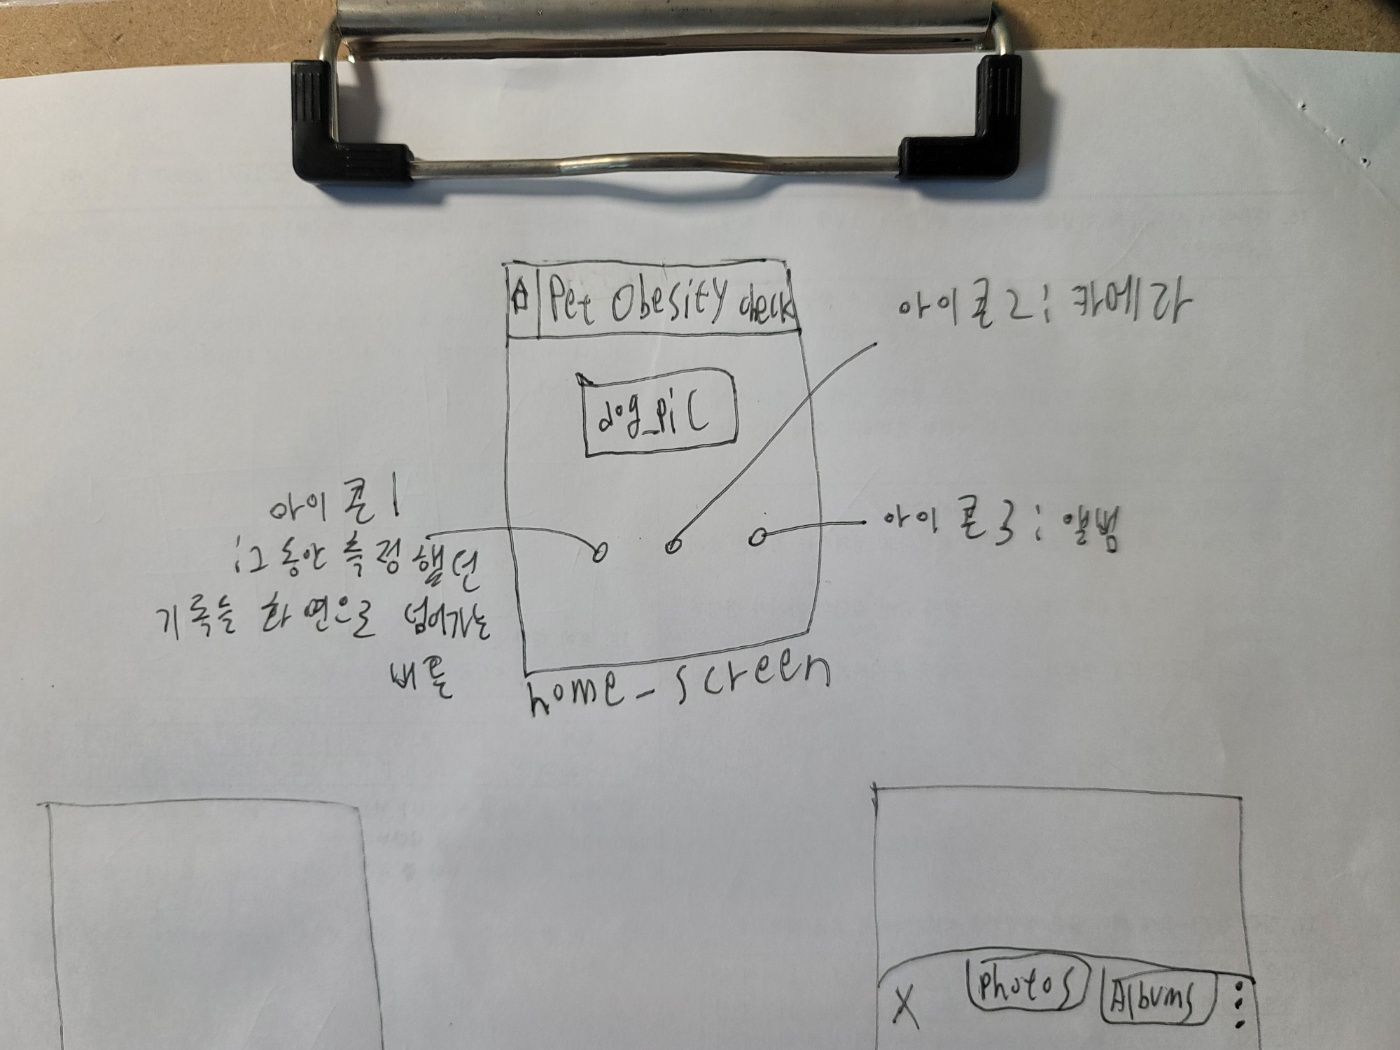 Pet Obesity check
dog_pic
아이콘 2 : 카메라
아이콘 1
: 그동안 측정했던
기록을 화면으로 넘어가는
버튼
아이콘 3 : 앨범
home_screen
X Photos Albums